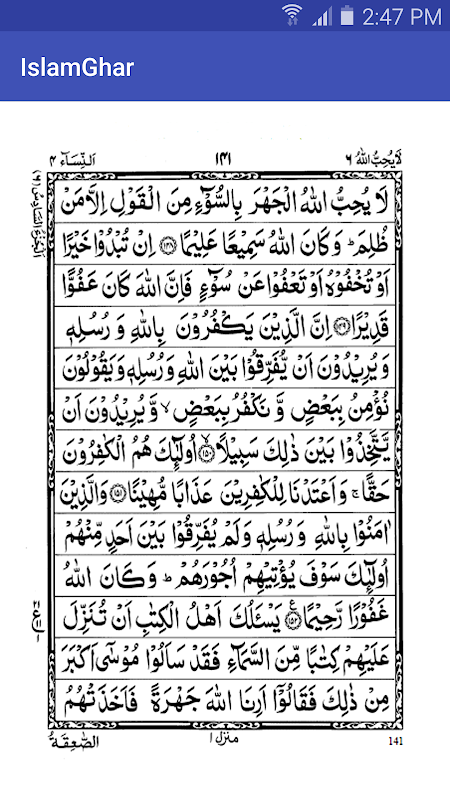 2:47 PM
IslamGhar
لَا يُحِبُّ اللهُ ٦
١٤١
اَلنِّسَآء ٤
اَلْجُزْءُ السَّادِسُ (٦)
لَا يُحِبُّ اللهُ الْجَهْرَ بِالسُّوْٓءِ مِنَ الْقَوْلِ اِلَّا مَنْ
ظُلِمَ ؕ وَ كَانَ اللهُ سَمِيْعًا عَلِيْمًا ﴿۱۴۸﴾ اِنْ تُبْدُوْا خَيْرًا
اَوْ تُخْفُوْهُ اَوْ تَعْفُوْا عَنْ سُوْٓءٍ فَاِنَّ اللهَ كَانَ عَفُوًّا
قَدِيْرًا ﴿۱۴۹﴾ اِنَّ الَّذِيْنَ يَكْفُرُوْنَ بِاللهِ وَ رُسُلِهٖ
وَ يُرِيْدُوْنَ اَنْ يُّفَرِّقُوْا بَيْنَ اللهِ وَ رُسُلِهٖ وَ يَقُوْلُوْنَ
نُؤْمِنُ بِبَعْضٍ وَّ نَكْفُرُ بِبَعْضٍ ۙ وَّ يُرِيْدُوْنَ اَنْ
يَّتَّخِذُوْا بَيْنَ ذٰلِكَ سَبِيْلًا ﴿۱۵۰﴾ ۙ اُولٰٓئِكَ هُمُ الْكٰفِرُوْنَ
حَقًّا ۚ وَ اَعْتَدْنَا لِلْكٰفِرِيْنَ عَذَابًا مُّهِيْنًا ﴿۱۵۱﴾ وَ الَّذِيْنَ
اٰمَنُوْا بِاللهِ وَ رُسُلِهٖ وَ لَمْ يُفَرِّقُوْا بَيْنَ اَحَدٍ مِّنْهُمْ
اُولٰٓئِكَ سَوْفَ يُؤْتِيْهِمْ اُجُوْرَهُمْ ؕ وَ كَانَ اللهُ
غَفُوْرًا رَّحِيْمًا ﴿۱۵۲﴾ ع يَسْـَٔلُكَ اَهْلُ الْكِتٰبِ اَنْ تُنَزِّلَ
عَلَيْهِمْ كِتٰبًا مِّنَ السَّمَآءِ فَقَدْ سَاَلُوْا مُوْسٰٓى اَكْبَرَ
مِنْ ذٰلِكَ فَقَالُوْٓا اَرِنَا اللهَ جَهْرَةً فَاَخَذَتْهُمُ
الصّٰعِقَةُ
منزل ١
141